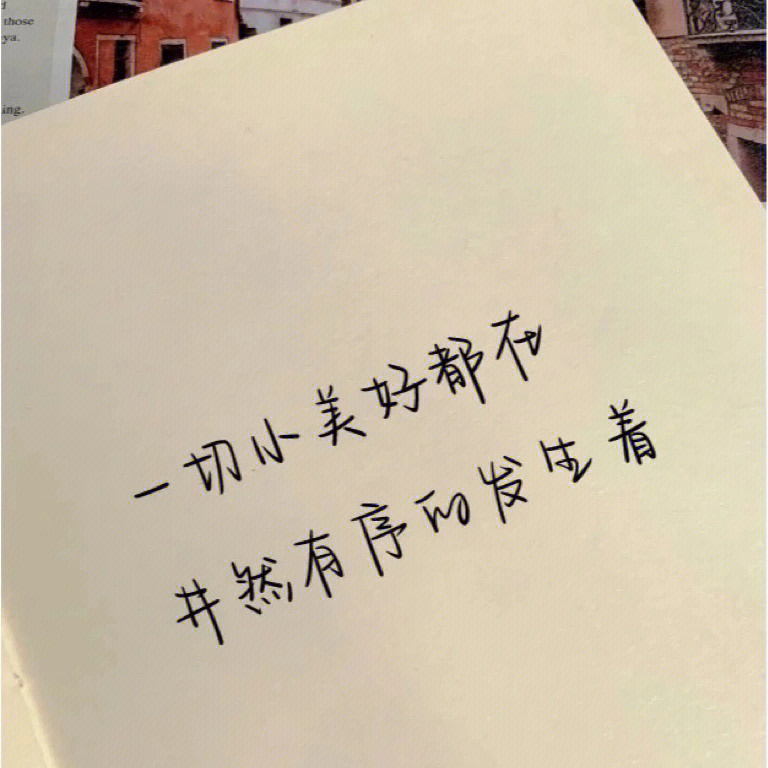 those
ya.
ing.
一切小美好都在
井然有序的发生着